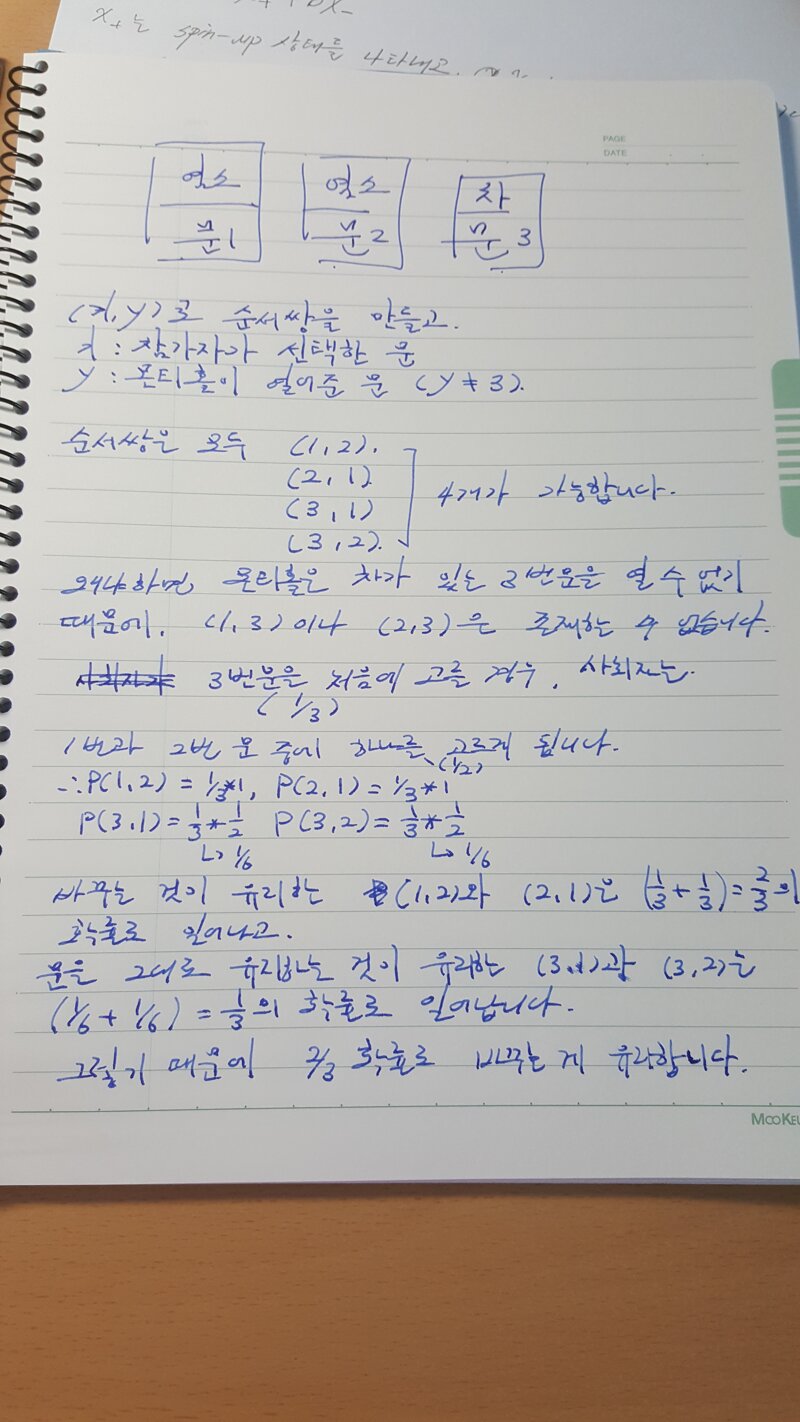 x₊는 spin-up 상태를 나타내고.
PAGE
DATE
염소 염소 차
문1 문2 문3
(x, y)로 순서쌍을 만들고.
x : 참가자가 선택한 문
y : 몬티홀이 열어준 문 (y ≠ 3).
순서쌍은 모두 (1, 2).
(2, 1)
(3, 1)
(3, 2).
4개가 가능합니다.
왜냐하면, 몬티홀은 차가 있는 3번문을 열 수 없기
때문에. (1, 3)이나 (2,3)은 존재할 수 없습니다.
사회자가 3번문을 처음에 고를 경우, 사회자는.
(1/3)
1번과 2번 문 중에 하나를 고르게 됩니다.
(1/2)
∴ P(1,2) = 1/3*1, P(2,1) = 1/3*1
P(3,1) = 1/3 * 1/2 P(3,2) = 1/3 * 1/2
↳ 1/6 ↳ 1/6
바꾸는 것이 유리한 (1,2)와 (2,1)은 (1/3 + 1/3) = 2/3의
확률로 일어나고.
문을 그대로 유지하는 것이 유리한 (3,1)과 (3,2)는
(1/6 + 1/6) = 1/3의 확률로 일어납니다.
그렇기 때문에 2/3 확률로 바꾸는 게 유리합니다.